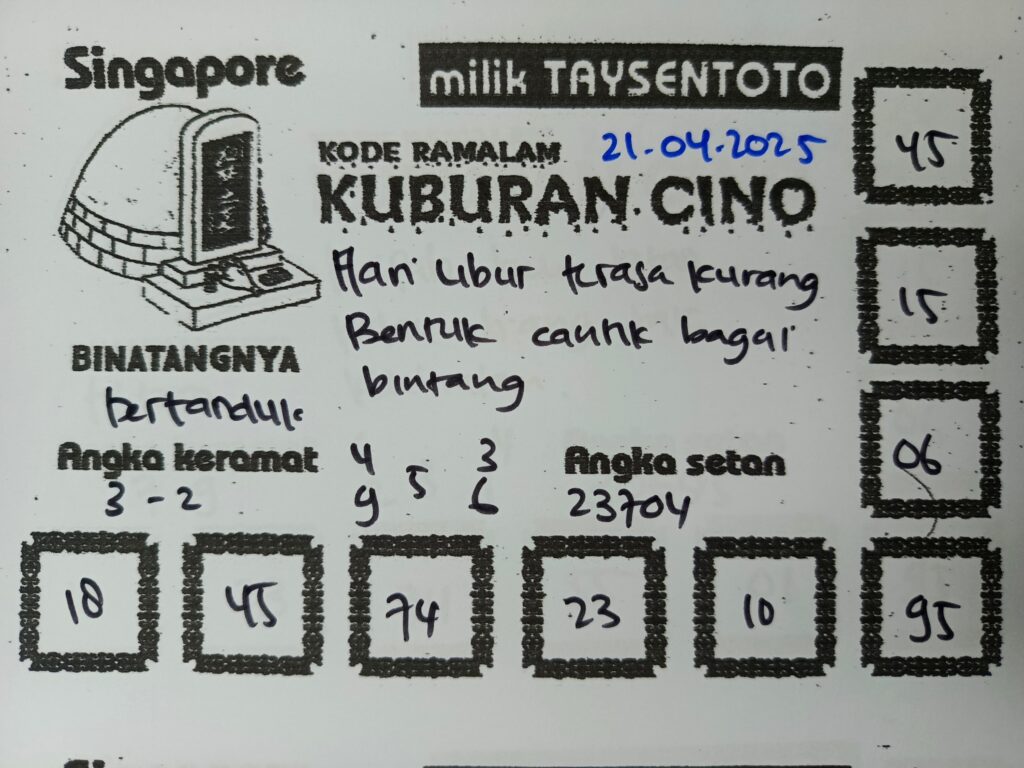 Singapore
milik TAYSENTOTO
KODE RAMALAM 21-04-2025
KUBURAN CINO
Hari Libur terasa kurang
Bentuk cantik bagai
bintang
BINATANGNYA
bertanduk
Angka keramat
3 - 2
4 3
5
9 6
Angka setan
23704
45
15
06
18 45 74 23 10 95